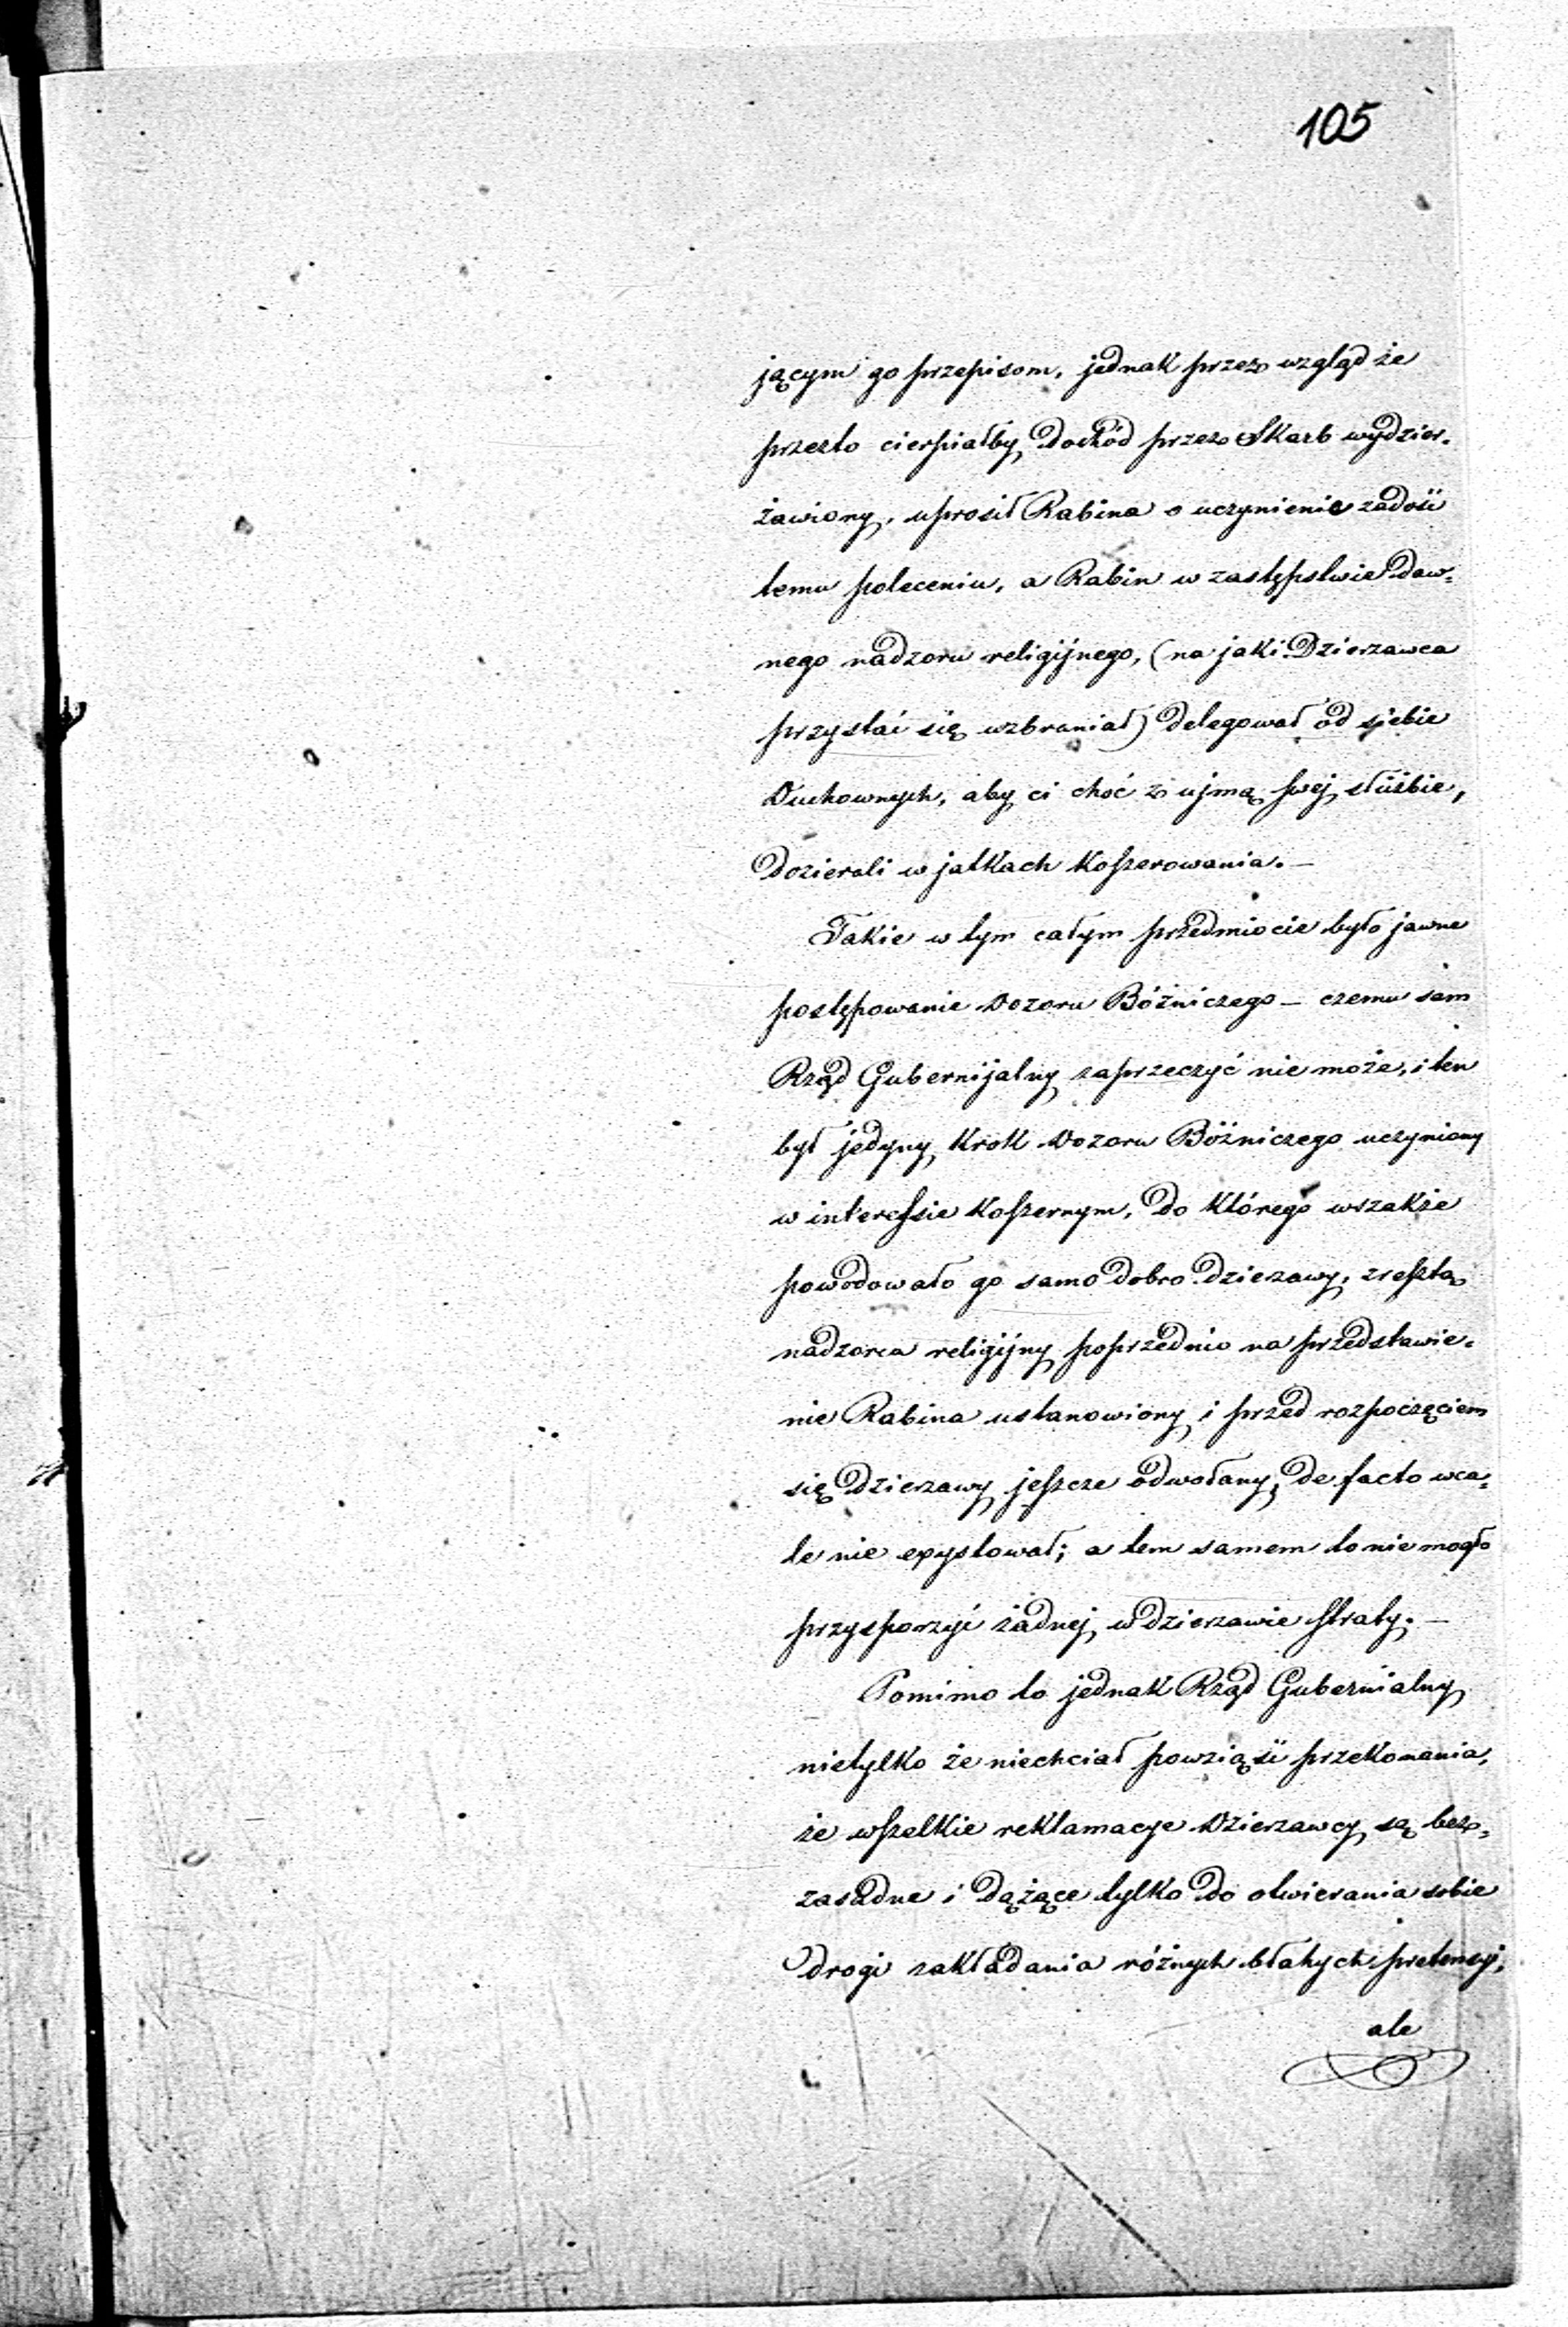 105
jącym go przepisom, jednak przez wzgląd że
przezto cierpiałby dochód przez Skarb wydzier-
żawiony, uprosił Rabina o uczynienie zadość
temu poleceniu, a Rabin w zastępstwie daw-
nego nadzoru religijnego, (na jaki Dzierzawca
przystać się wzbraniał) delegował od siebie
Duchownych, aby ci choć z ujmą swej służbie,
dozierali w jatkach koszerowania. —
Takie w tym całym przedmiocie było jawne
postępowanie Dozoru Bóżniczego — czemu sam
Rząd Gubernijalny zaprzeczyć nie może, i ten
był jedyny krok Dozoru Bóżniczego uczyniony
w interessie koszernym, do którego wszakże
powodowało go samo dobro dzierzawy, zresztą
nadzorca religijny poprzednio na przedstawie-
nie Rabina ustanowiony i przed rozpoczęciem
się dzierzawy jeszcze odwołany, de facto wca-
le nie exystował; a tem samem to nie mogło
przysporzyć żadnej w dzierzawie straty. —
Pomimo to jednak Rząd Gubernialny
nietylko że niechciał powziąść przekonania,
że wszelkie reklamacye Dzierzawcy są bez-
zasadne i dążące tylko do otwierania sobie
drogi zakładania różnych błahych pretensyi,
ale